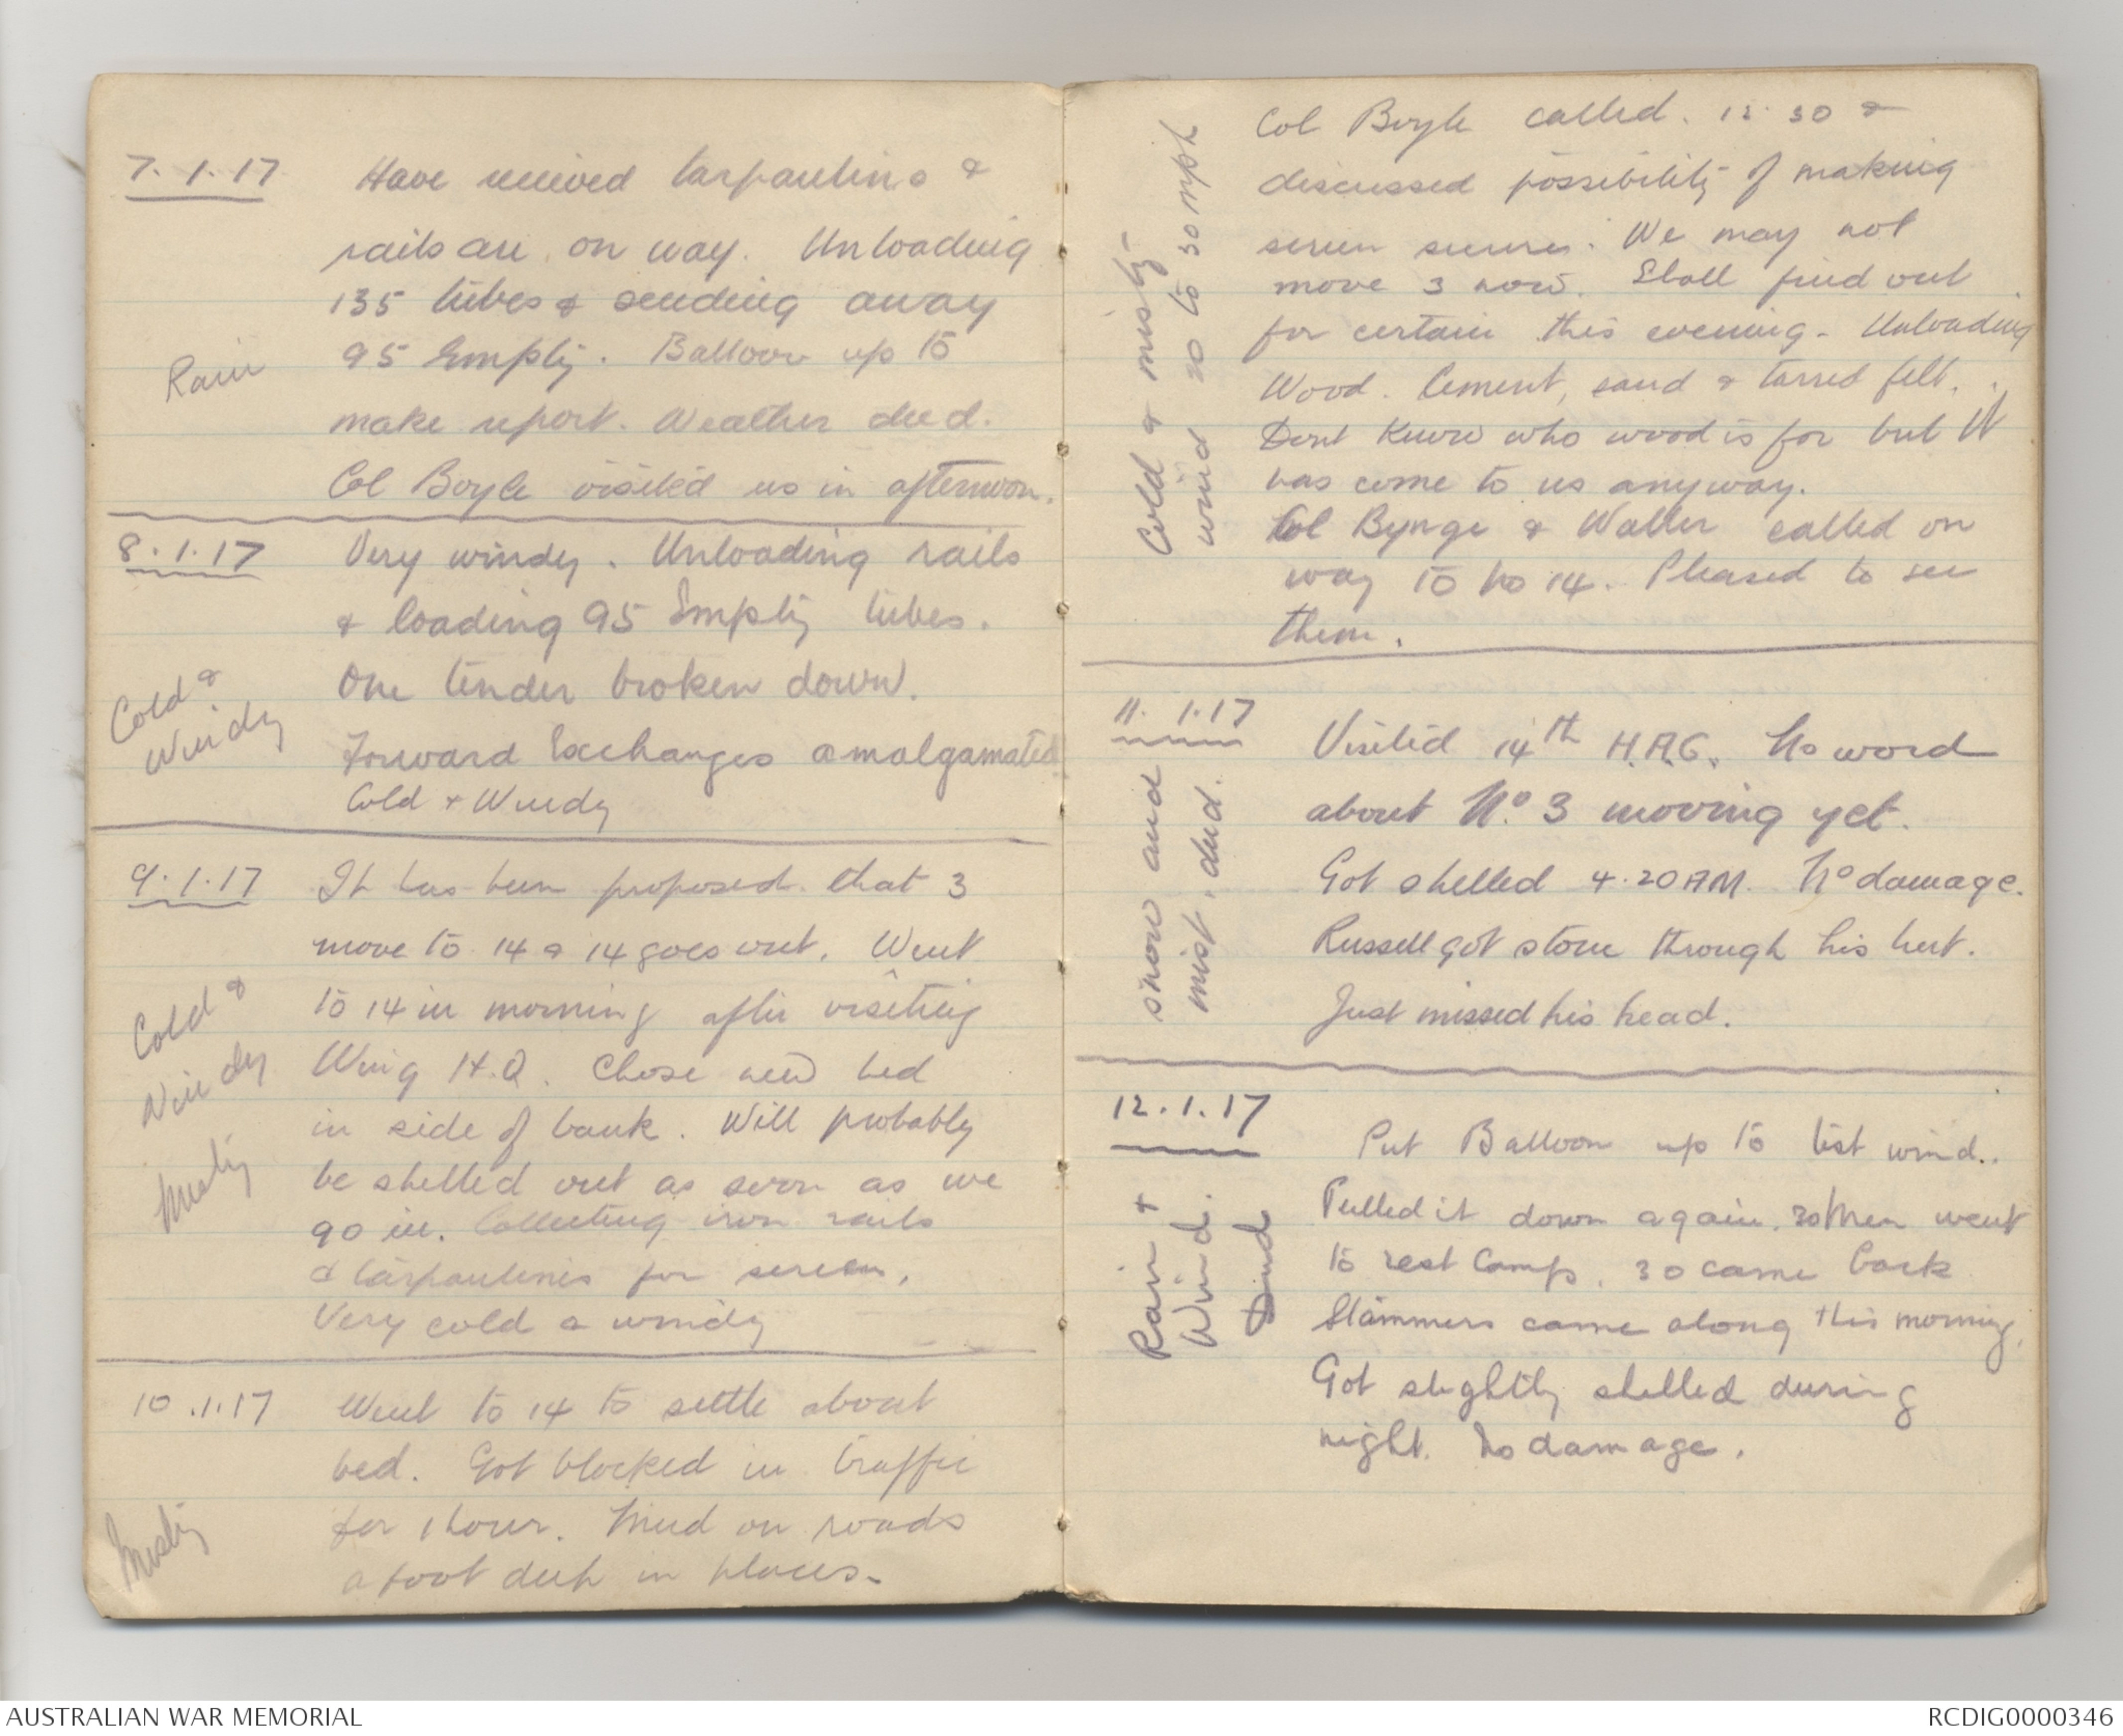 7.1.17
Have received tarpaulins &
rails are on way. Unloading
135 tubes & sending away
95 Empty. Balloon up to
Rain
make report. Weather dud.
Col Boyle visited us in afternoon.
8.1.17
Very windy. Unloading rails
& loading 95 Empty tubes.
One tender broken down.
Cold &
Windy
Forward Exchanges amalgamated
Cold + Windy
9.1.17
It has been proposed that 3
move to 14 & 14 goes out. Went
to 14 in morning after visiting
Cold &
Windy
Misty
Wing H.Q. Chose new bed
in side of bank. Will probably
be shelled out as soon as we
go in. Collecting iron rails
& tarpaulines for screen.
Very cold & windy
10.1.17
Went to 14 to settle about
bed. Got blocked in traffic
for 1 hour. Mud on roads
a foot deep in places.
Misty
Cold & misty
wind 20 to 30 mph
Col Boyle called. 12.30 &
discussed possibility of making
screen secure. We may not
move 3 now. Shall find out
for certain this evening. Unloading
Wood. Cement, sand & tarred felt.
Dont know who wood is for but it
has come to us anyway.
Col Bynge & Waller called on
way to No 14. Pleased to see
them.
11.1.17
snow and
mist, dud.
Visited 14th H.A.G. No word
about No. 3 moving yet.
Got shelled 4.20 AM. No damage.
Russell got stone through his hut.
Just missed his head.
12.1.17
Rain +
Wind.
Dud
Put Balloon up to test wind..
Pulled it down again. 30 Men went
to rest Camp. 30 came back
Stammers came along this morning.
Got slightly shelled during
night. No damage.
AUSTRALIAN WAR MEMORIAL
RCDIG0000346